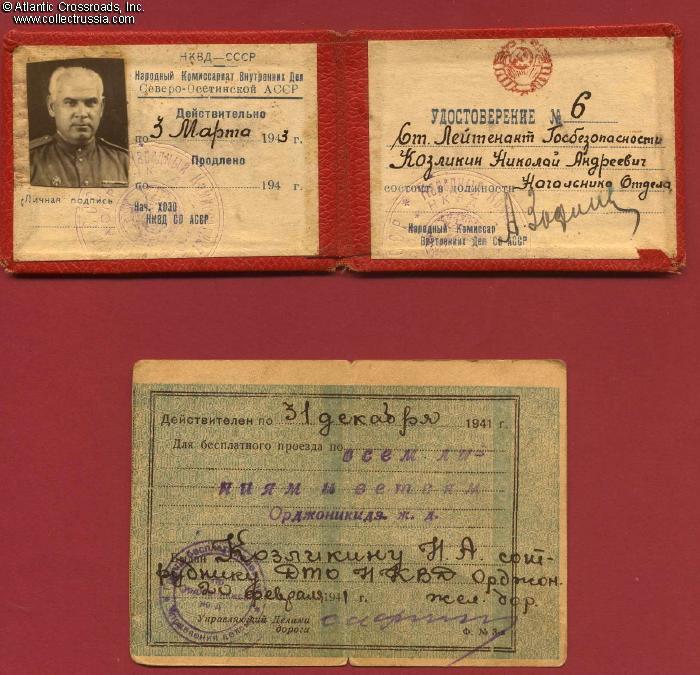 © Atlantic Crossroads, Inc.
www.collectrussia.com
НКВД—СССР
Народный Комиссариат Внутренних Дел
Северо-Осетинской АССР
Действительно
по 3 Марта 1943 г.
Продлено
по 194 г.
Личная подпись
Нач. ХОЗО
НКВД СО АССР
УДОСТОВЕРЕНИЕ № 6
Ст. Лейтенант Госбезопасности
Козликин Николай Андреевич
состоит в должности Начальника Отдела
Народный Комиссар
Внутренних Дел СО АССР
Действителен по 31 декабря 1941 г.
Для бесплатного проезда по всем ли-
ниям и ветвям
Орджоникидз. ж. д.
Выдан Козликину Н. А. сот-
руднику ДТО НКВД Орджон.
20 февраля 1941 г. жел. дор.
Управляющий Делами
дороги
Ф. №